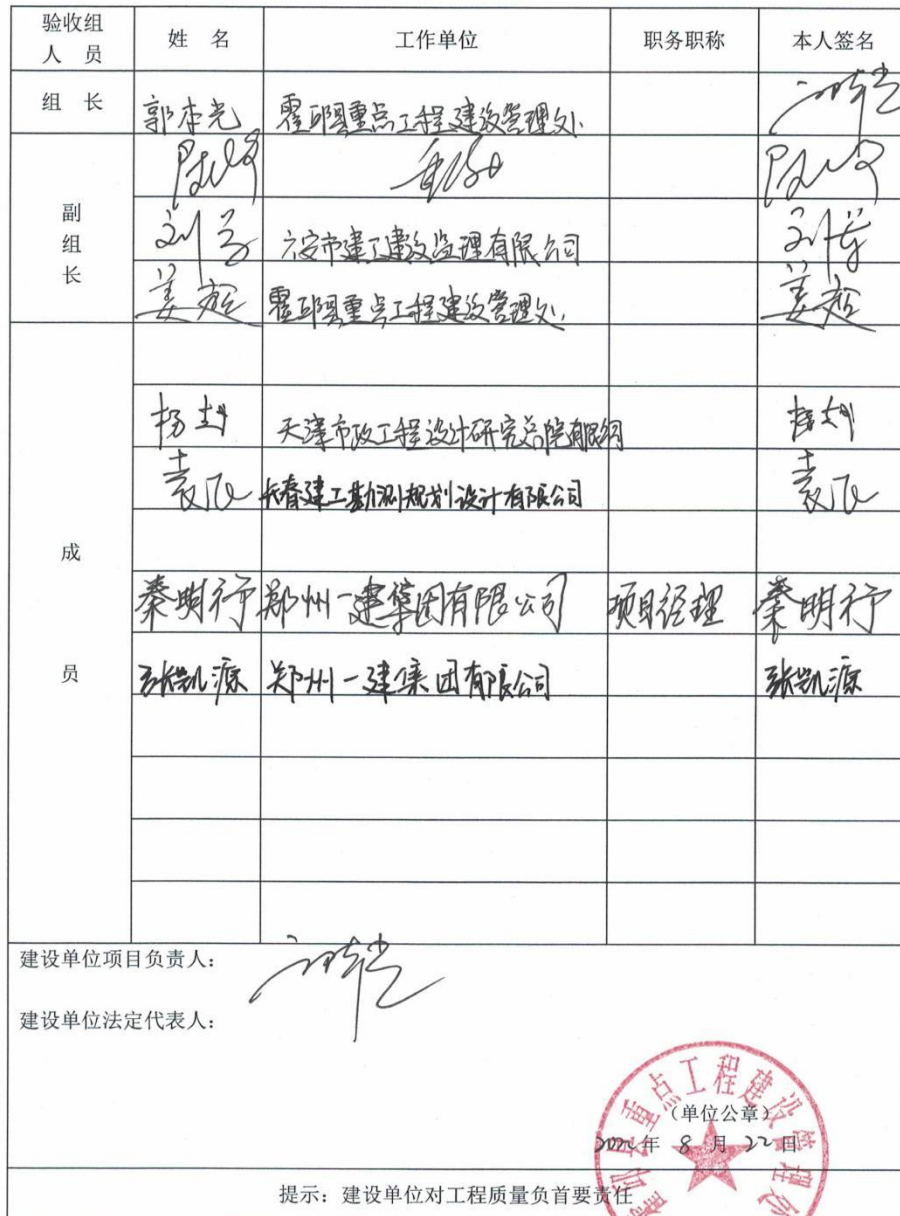 验收组人员 姓 名 工作单位 职务职称 本人签名
组 长 郭本光 霍邱县重点工程建设管理处
副组长
刘芳 六安市建工建设监理有限公司 刘芳
姜超 霍邱县重点工程建设管理处 姜超
成员
杨 天津市政工程设计研究总院有限公司 杨
袁飞 长春建工勘测规划设计有限公司 袁飞
秦明行 郑州一建集团有限公司 项目经理 秦明行
张凯源 郑州一建集团有限公司 张凯源
建设单位项目负责人：
建设单位法定代表人：
霍邱县重点工程建设管理处
（单位公章）
2022年 8 月 22 日
提示：建设单位对工程质量负首要责任